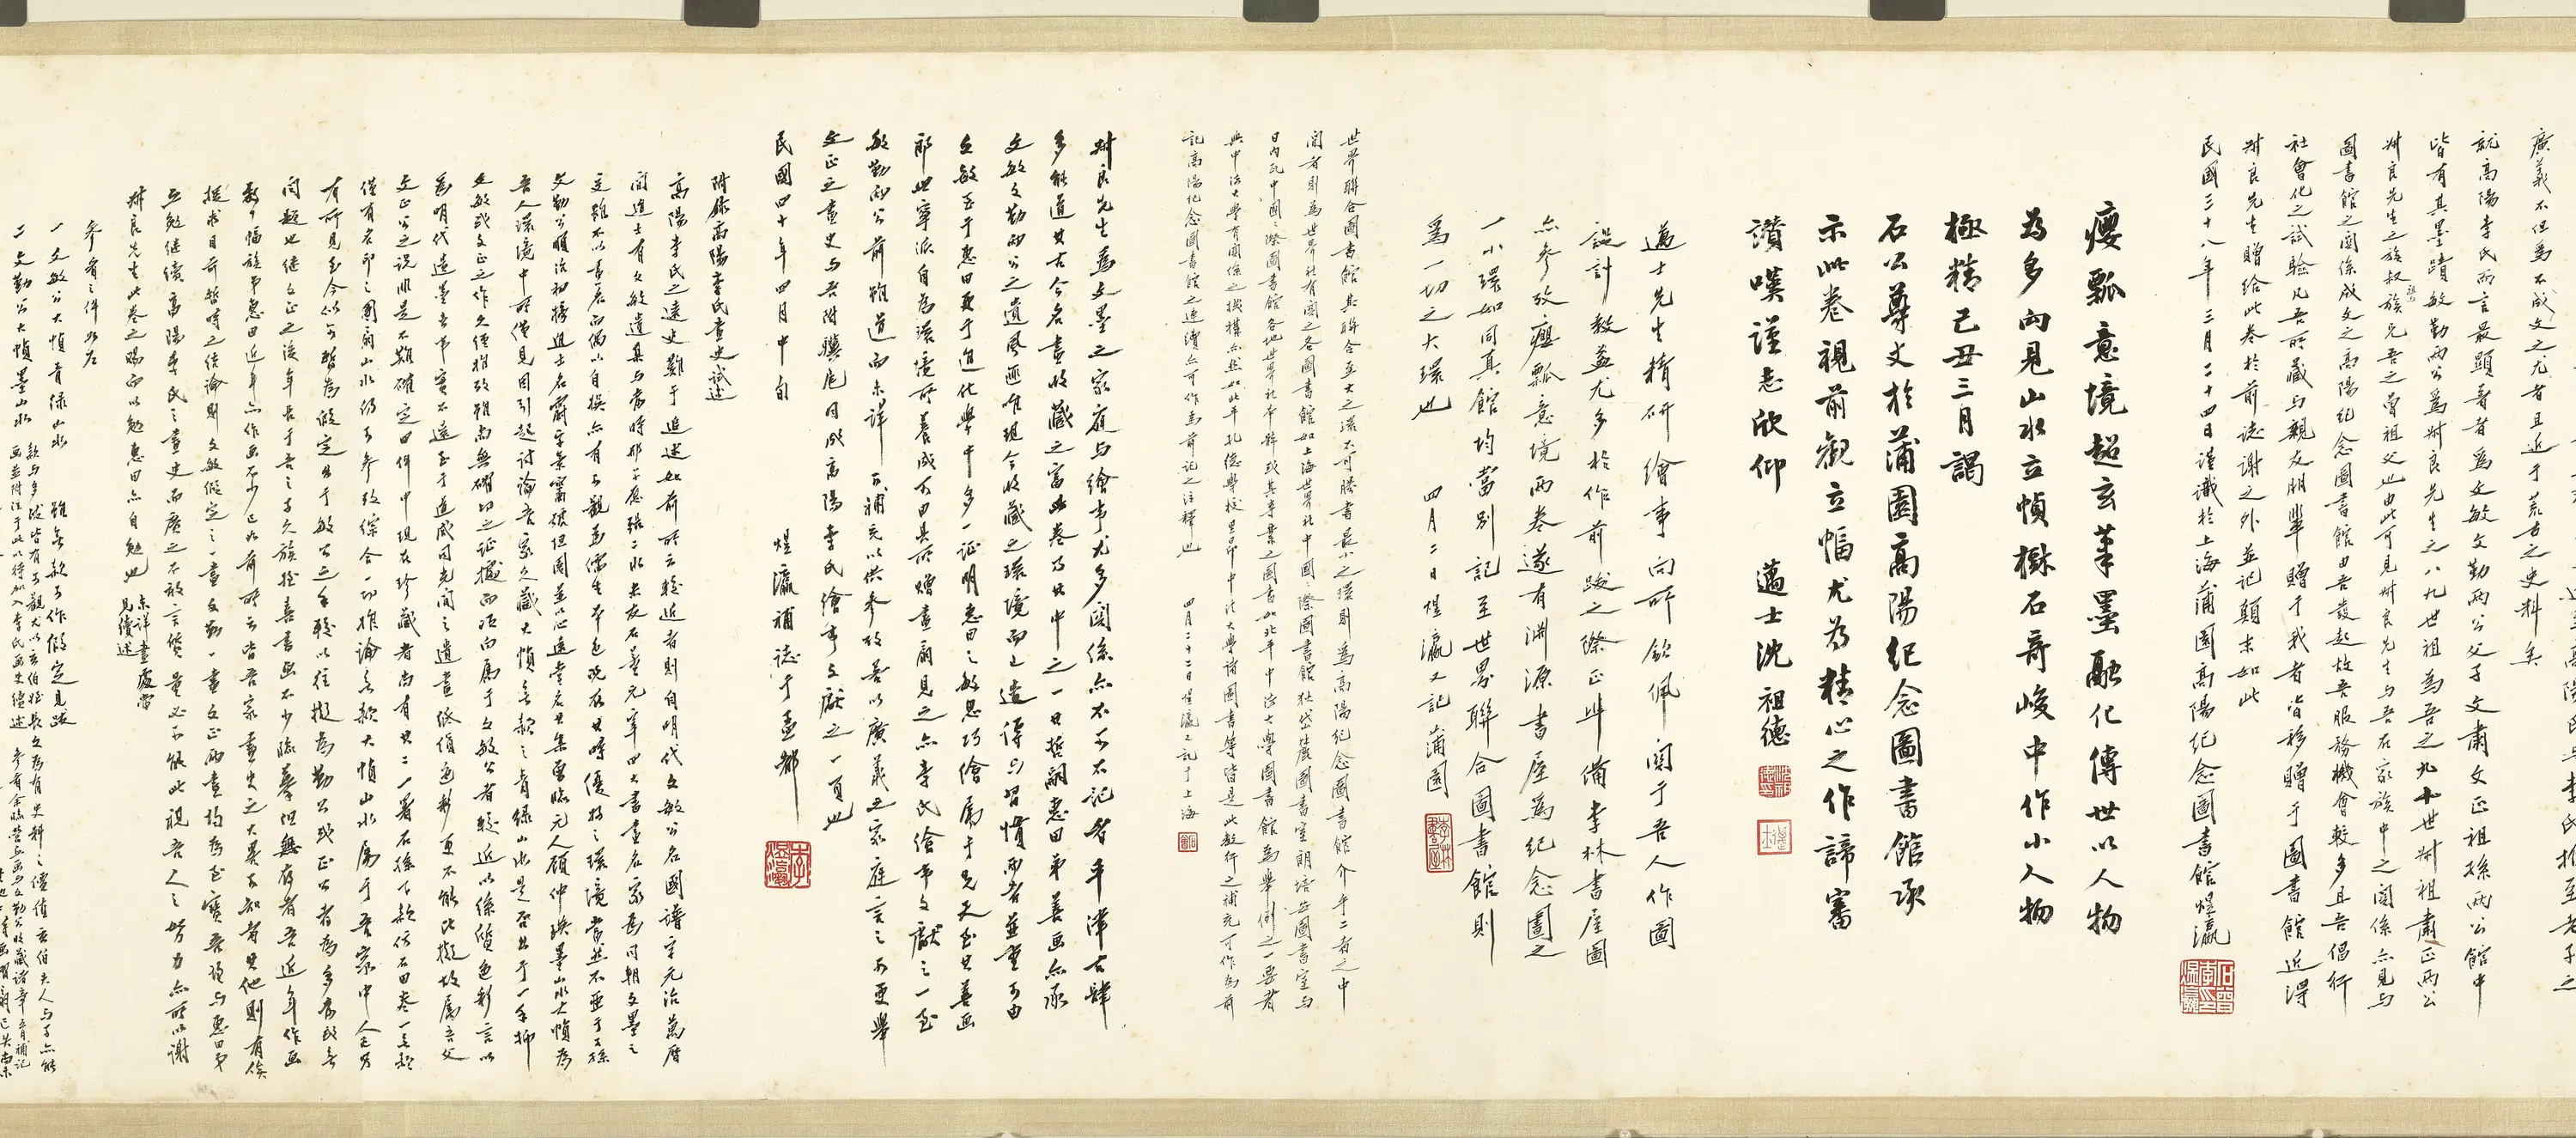 廣義不但為不成文之尤者且近于荒古之史料矣
就高陽李氏而言最顯著者為文敏文勤兩公父子文肅文正祖孫兩公館中
皆有其墨蹟敏勤兩公為尌良先生之八九世祖為吾之九十世尌祖肅正兩公
尌良先生之族叔族兄吾之曾祖父也由此可見尌良先生与吾在家族中之関係亦見与
圖書館之関係成文之高陽纪念圖書館由吾發起故吾服務機會較多且吾倡行
社會化之試驗凡吾所藏与親友朋輩贈于我者皆移贈于圖書館近得
尌良先生贈给此卷於前誌謝之外並記顛末如此
民國三十八年三月二十四日謹識於上海蒲園高陽纪念圖書館煜瀛
癭瓢意境超玄筆墨融化傳世以人物
為多向見山水立幀樹石奇峻中作小人物
極精己丑三月謁
石公尊丈於蒲園高陽纪念圖書館承
示此卷視前觀立幅尤為精心之作諦審
讚嘆謹志欣仰 邁士沈祖德
邁士先生精研繪事向所欽佩関于吾人作圖
設計教益尤多於作前跋之際正準備李林書屋圖
亦參攷癭瓢意境兩卷遂有渊源書屋為纪念圖之
一小環如同真館均當別記至世界聯合圖書館則
為一切之大環也 四月二日煜瀛又記蒲園
世界聯合圖書館其聯合至大之環不可勝書最小之環則為高陽纪念圖書館介乎二者之中
関者則為世界社有関之各圖書館如上海世界社中國國際圖書館杜岱農圖書室朗培安圖書室与
日內瓦中國國際圖書館各地世界社本幹或其事業之圖書如北平中法大學圖書館為舉例之一要者
與中法大學有関係之機構亦然如北平孔德學校里昂中法大學諸圖書等皆是此數行之補充可作為前
記高陽纪念圖書館之連續亦可作為前記之注釋也 四月二十二日煜瀛又記于上海
尌良先生為文墨之家庭与繪事尤多関係亦不可不記者平津古肆
多能道其古今名畫收藏之富此卷乃其中之一其哲嗣惠田弟善画亦承
文敏文勤兩公之遺風迺唯現今收藏之環境而上遺傳与習慣兩者並重可由
文敏至于惠田更于進化學中多一证明惠田之敏思巧繪屬于先天至其善画
郎世寧派自為環境所養成可由其所赠畫扇見之亦李氏繪事文獻之一至
敏勤兩公前雖道而未詳可補充以供參攷若以廣義之家庭言之可更舉
文正之畫史与吾附驥尾同成高陽李氏繪事文獻之一頁也
民國四十年四月中旬 煜瀛補誌于孟都
附錄高陽李氏畫史試述
高陽李氏之遠史難于追述如前所云較近者則自明代文敏公名國譜字元治萬曆
間進士有文敏遺集与當時邢子愿張二水米友石董元宰四大書畫名家為同朝文墨之
交雖不以書名而偶以自撰亦有可觀為儒生本色既有其時優好之環境當然不亞于其孫
文勤公順治初榜進士名霨字景霱號坦園並以心遠堂名其集画臨元人顧仲瑛墨山水大幀為
吾人環境中所僅見因引起討論吾家久藏大幀無款之青绿山水是否出于一手抑
文敏或文正之作久經推攷雖尚無確切之证據而咗向属于文敏公者較近以絲質色彩言以
為明代遺墨者不實不遠至于道咸同光间之遺畫紙價色彩更不能比擬故属吾父
文正公之说似是不難確定四件中現在珍藏者尚有其二一署石孫下款仿石田卷一無款
僅有名印之團扇山水仍可參攷综合一切推論無款大幀山水属于吾家中人之另
有所見至今似可暫為假定出于敏公之手較以往擬為勤公或正公者為多為既無
问題也继文正之後年長于吾之子久族姪喜書画不少臨摹但無存者吾近年作画
數幅族弟惠田近年亦作画不少正如前所云皆吾家畫史之大異可知者其他則有俟
搜求目前暫時之结論則文敏假定之一畫文勤一畫文正兩畫均為至寶吾須与惠田弟
共勉继續高陽李氏之畫史而廣之不敢言質量必可能此視吾人之努力亦所以謝
尌良先生此卷之賜而以勉惠田亦自勉也 未詳畫處當見續述
參看之件如右
一 文敏公大幀青绿山水 雖無款可作假定見跋
二 文勤公大幀墨山水